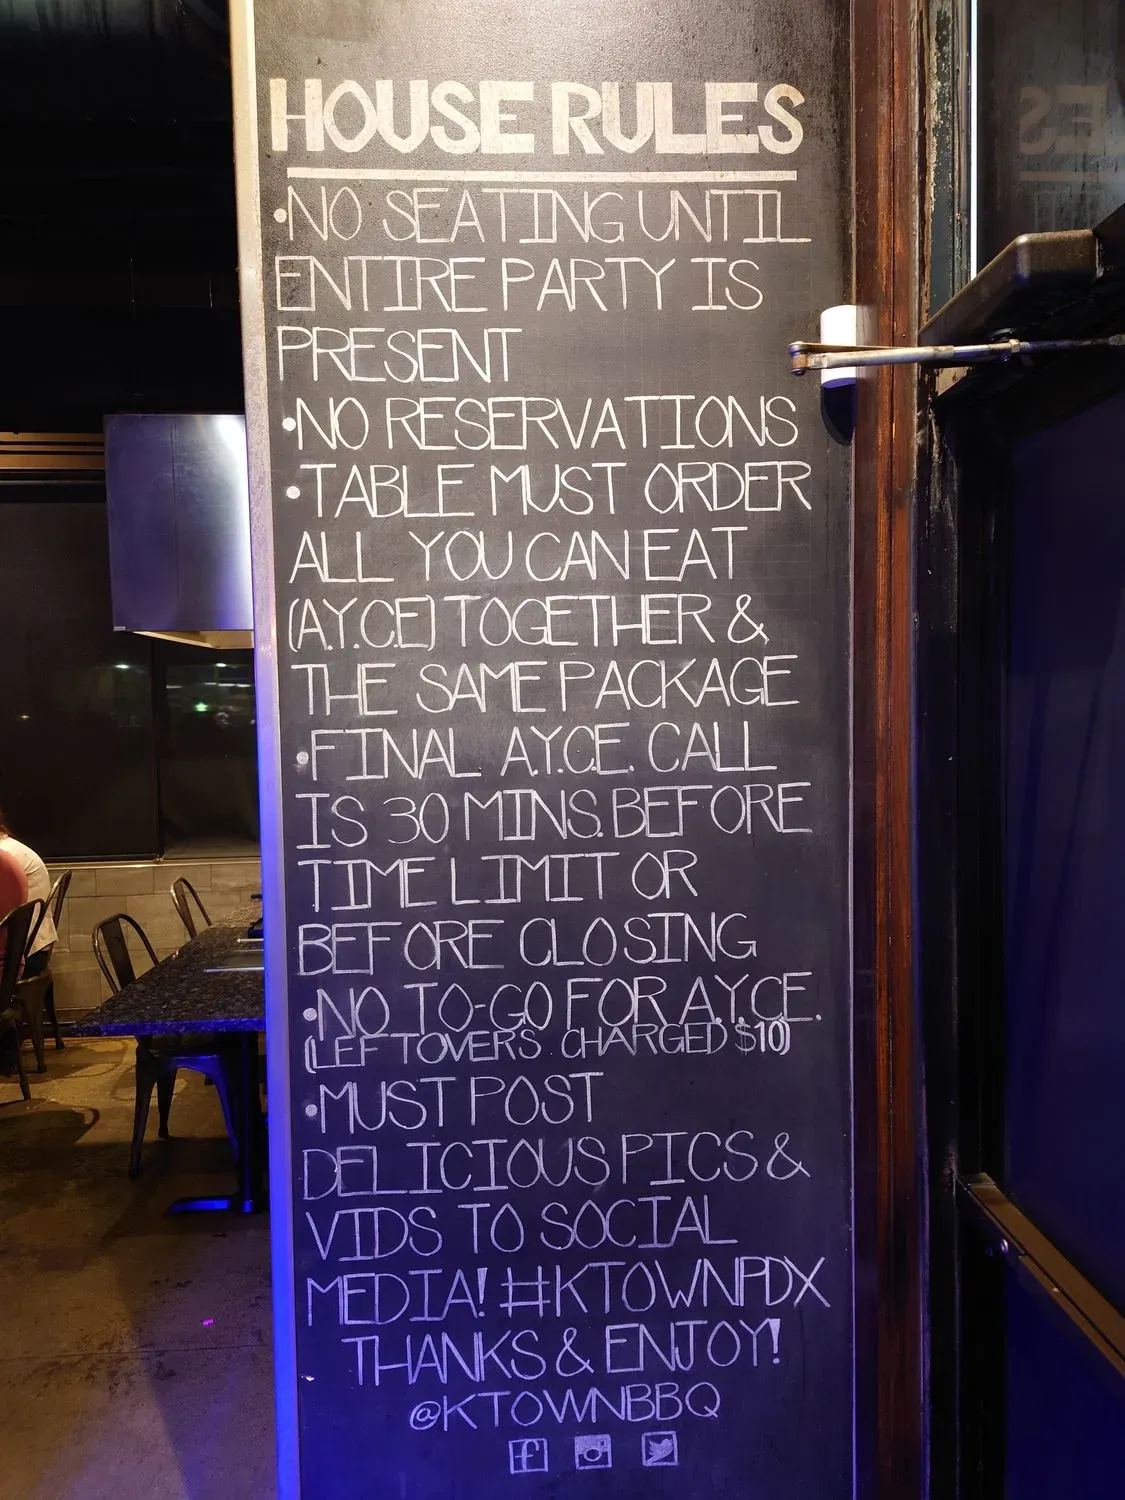 HOUSE RULES
•NO SEATING UNTIL
ENTIRE PARTY IS
PRESENT
•NO RESERVATIONS
•TABLE MUST ORDER
ALL YOU CAN EAT
(A.Y.C.E) TOGETHER &
THE SAME PACKAGE
•FINAL A.Y.C.E. CALL
IS 30 MINS. BEFORE
TIME LIMIT OR
BEFORE CLOSING
•NO TO-GO FOR A.Y.C.E.
(LEFTOVERS CHARGED $10)
•MUST POST
DELICIOUS PICS &
VIDS TO SOCIAL
MEDIA! #KTOWNPDX
THANKS & ENJOY!
@KTOWNBBQ